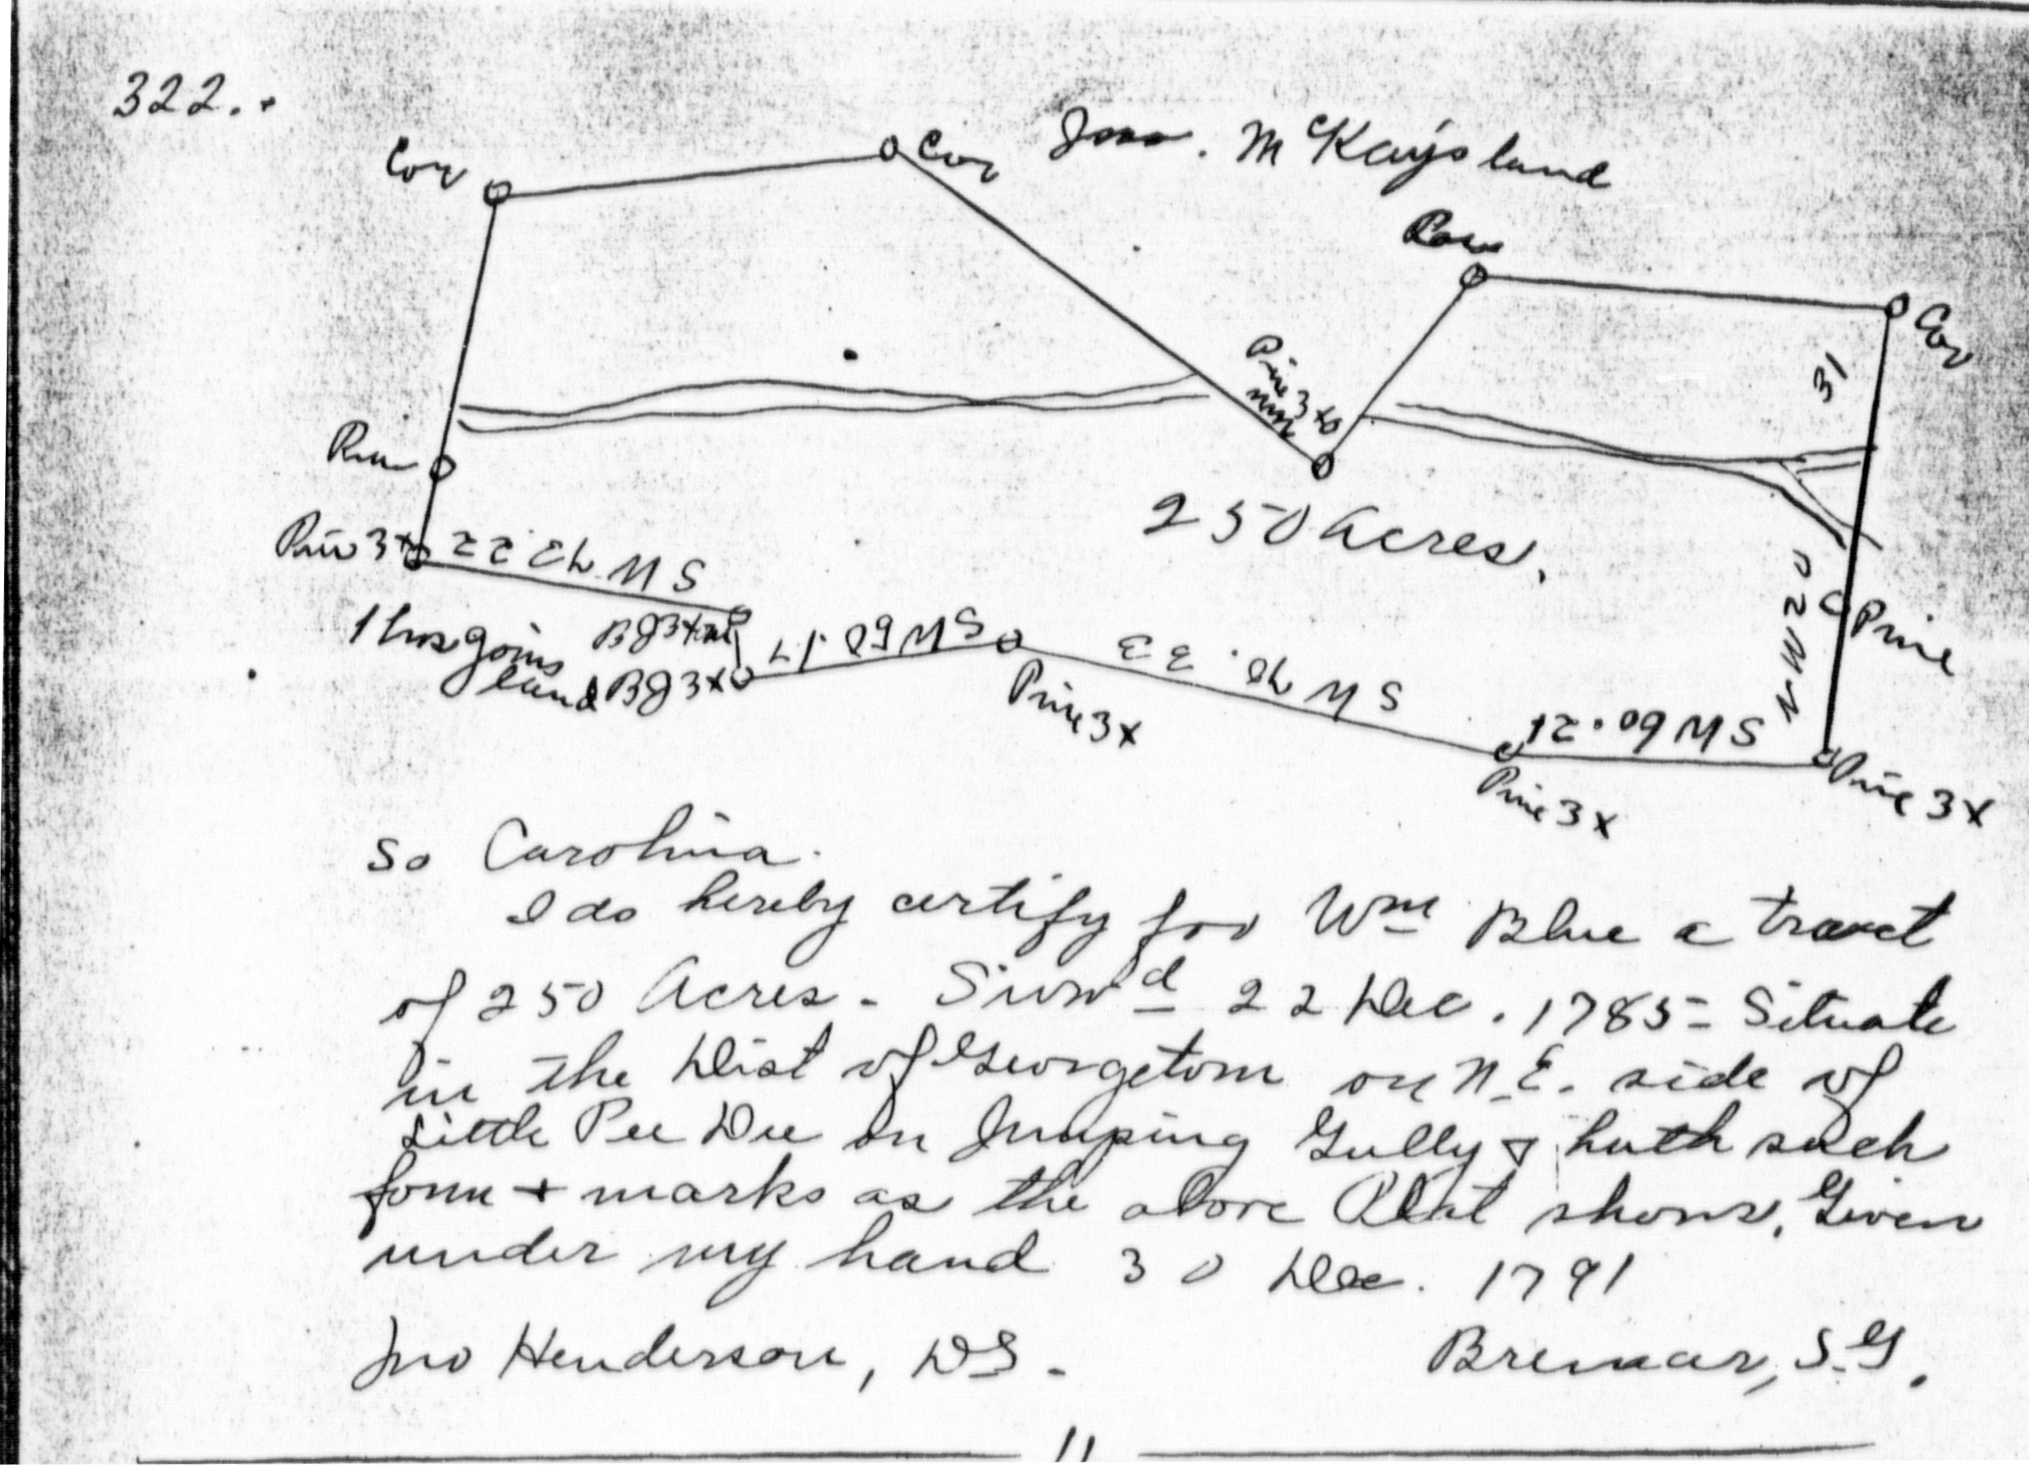 322.
Cor
Cor
Jno. McKay's land
Cor
31
Pine 3x
Pine 3x
S W 43.22
250 Acres.
land
B G 3x
S W 60.17
Pine 3x
S W 40.33
Pine 3x
S W 60.21
N W 20
Pine
Pine 3x
So Carolina.
I do hereby certify for Wm Blue a tract
of 250 Acres - Survd 22 Dec. 1785 - Situate
in the Dist of Georgetown on N.E. side of
Little Pee Dee on Jumping Gully & hath such
form + marks as the above Plat shows, Given
under my hand 30 Dec. 1791
Jno Henderson, DS. Bremar, S.G.
11